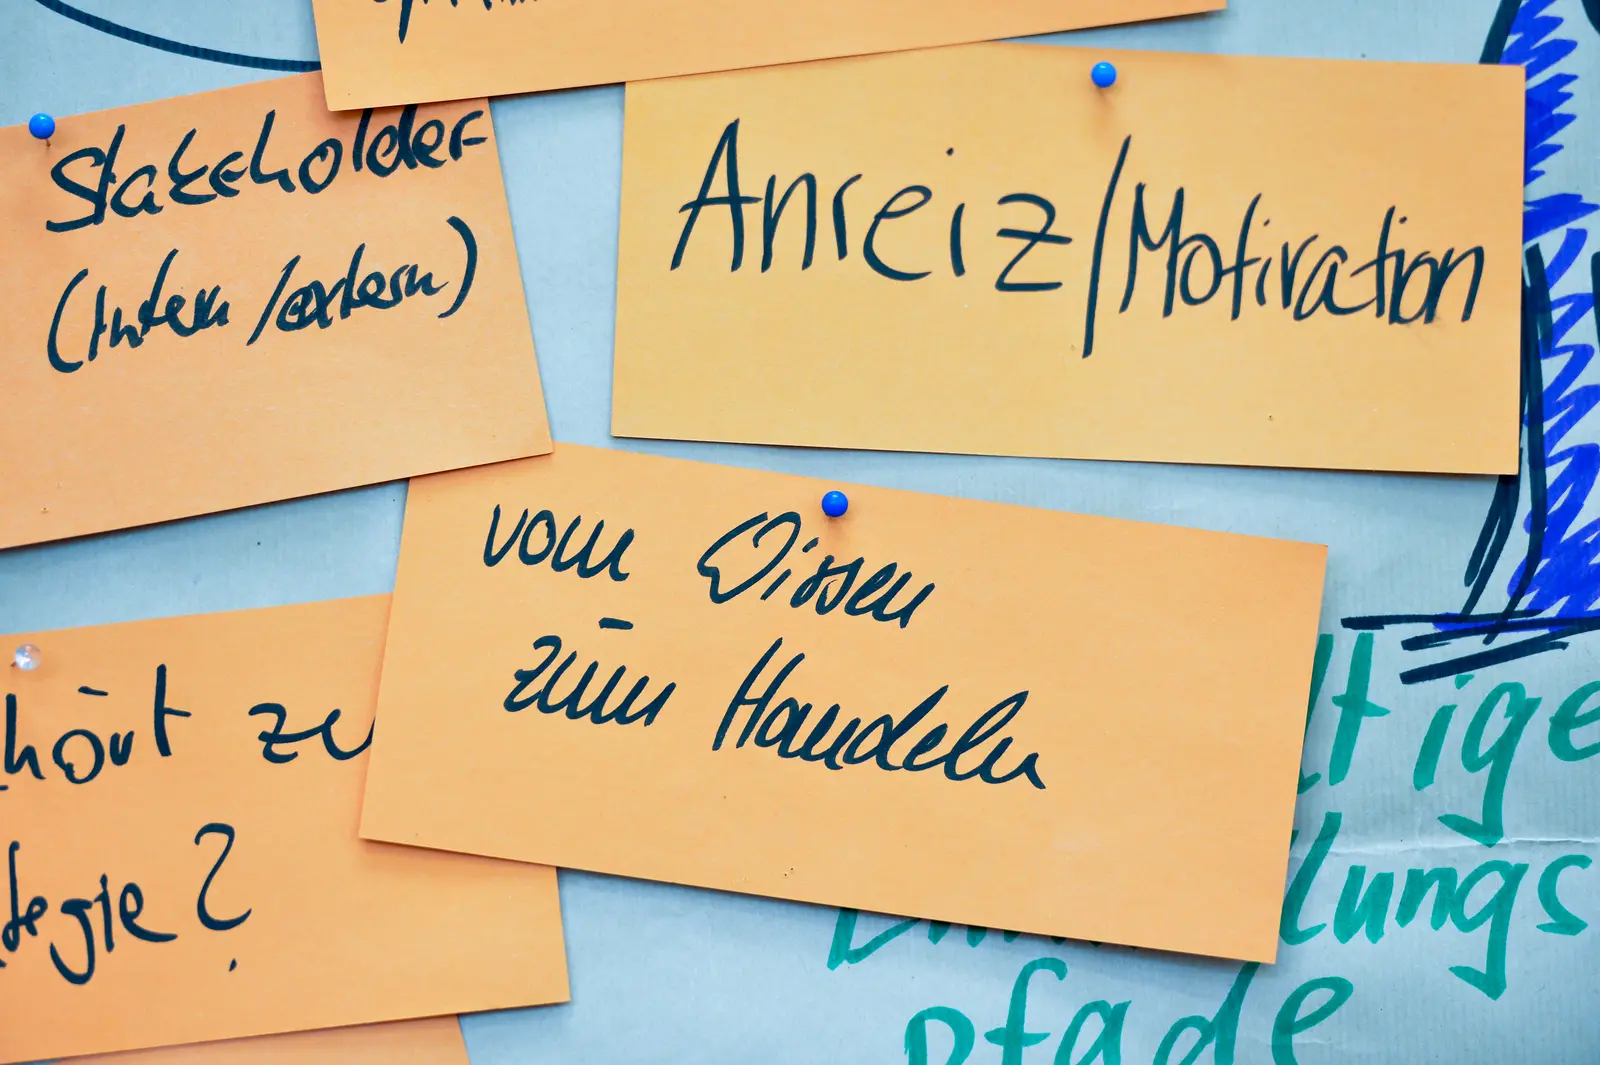 Stakeholder
(intern/extern)
Anreiz/Motivation
vom Wissen
zum Handeln
hört zu
tegie?
tige
lungs
pfade